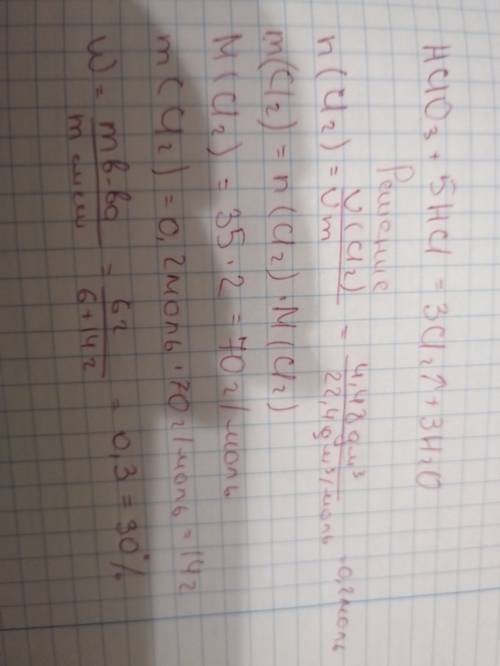 HClO3 + 5HCl = 3Cl2↑ + 3H2O
Решение
n(Cl2) = V(Cl2) / Vm = 4,48 дм³ / 22,4 дм³/моль = 0,2 моль
m(Cl2) = n(Cl2) · M(Cl2)
M(Cl2) = 35 · 2 = 70 г/моль
m(Cl2) = 0,2 моль · 70 г/моль = 14 г
W = m в-ва / m смеш = 6г / 6+14г = 0,3 = 30%